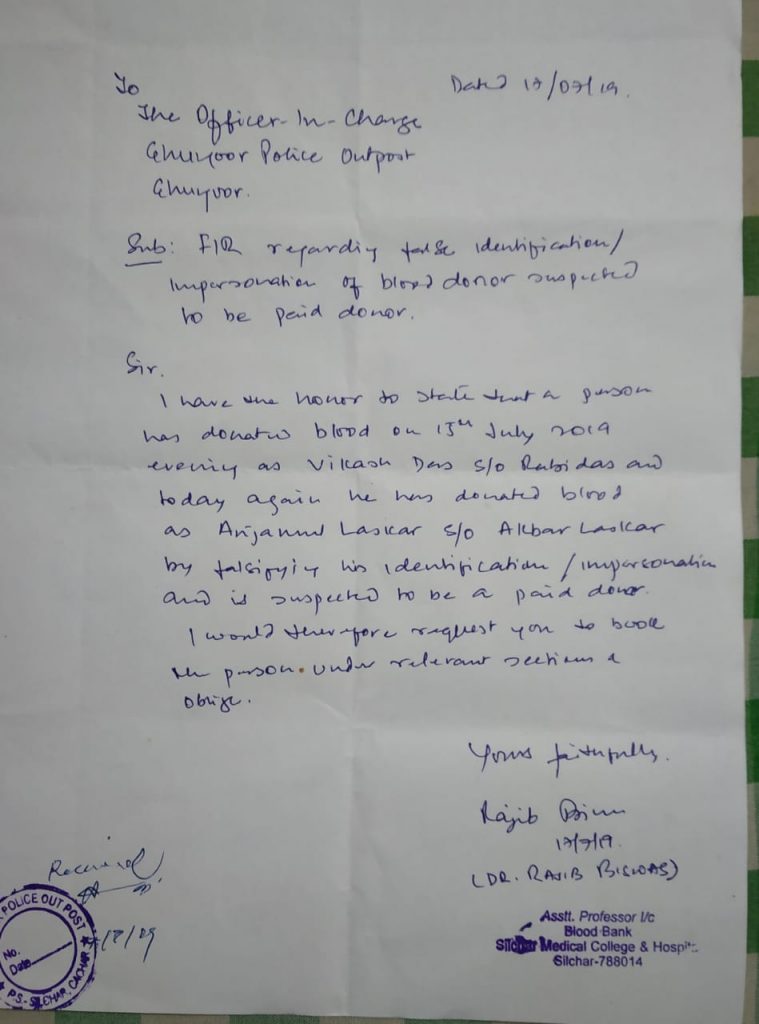 To
Dated 17/07/19.
The Officer-In-Charge
Ghungoor Police Outpost
Ghungoor.
Sub: FIR regarding false identification/
Impersonation of blood donor suspected
to be paid donor.
Sir.
I have the honor to state that a person
has donated blood on 15th July 2019
evening as Vikash Das S/o Rabi das and
today again he has donated blood
as Laskar S/o Akbar Laskar
by falsifying his identification / impersonation
and is suspected to be a paid donor.
I would therefore request you to book
the person under relevant sections &
oblige.
Yours faithfully.
Rajib
17/7/19.
(DR. RAJIB BISWAS)
Asstt. Professor I/c
Blood Bank
Silchar Medical College & Hospit
Silchar-788014
Received
POLICE OUT POST
No.
Date
P.S-SILCHAR, CACHAR